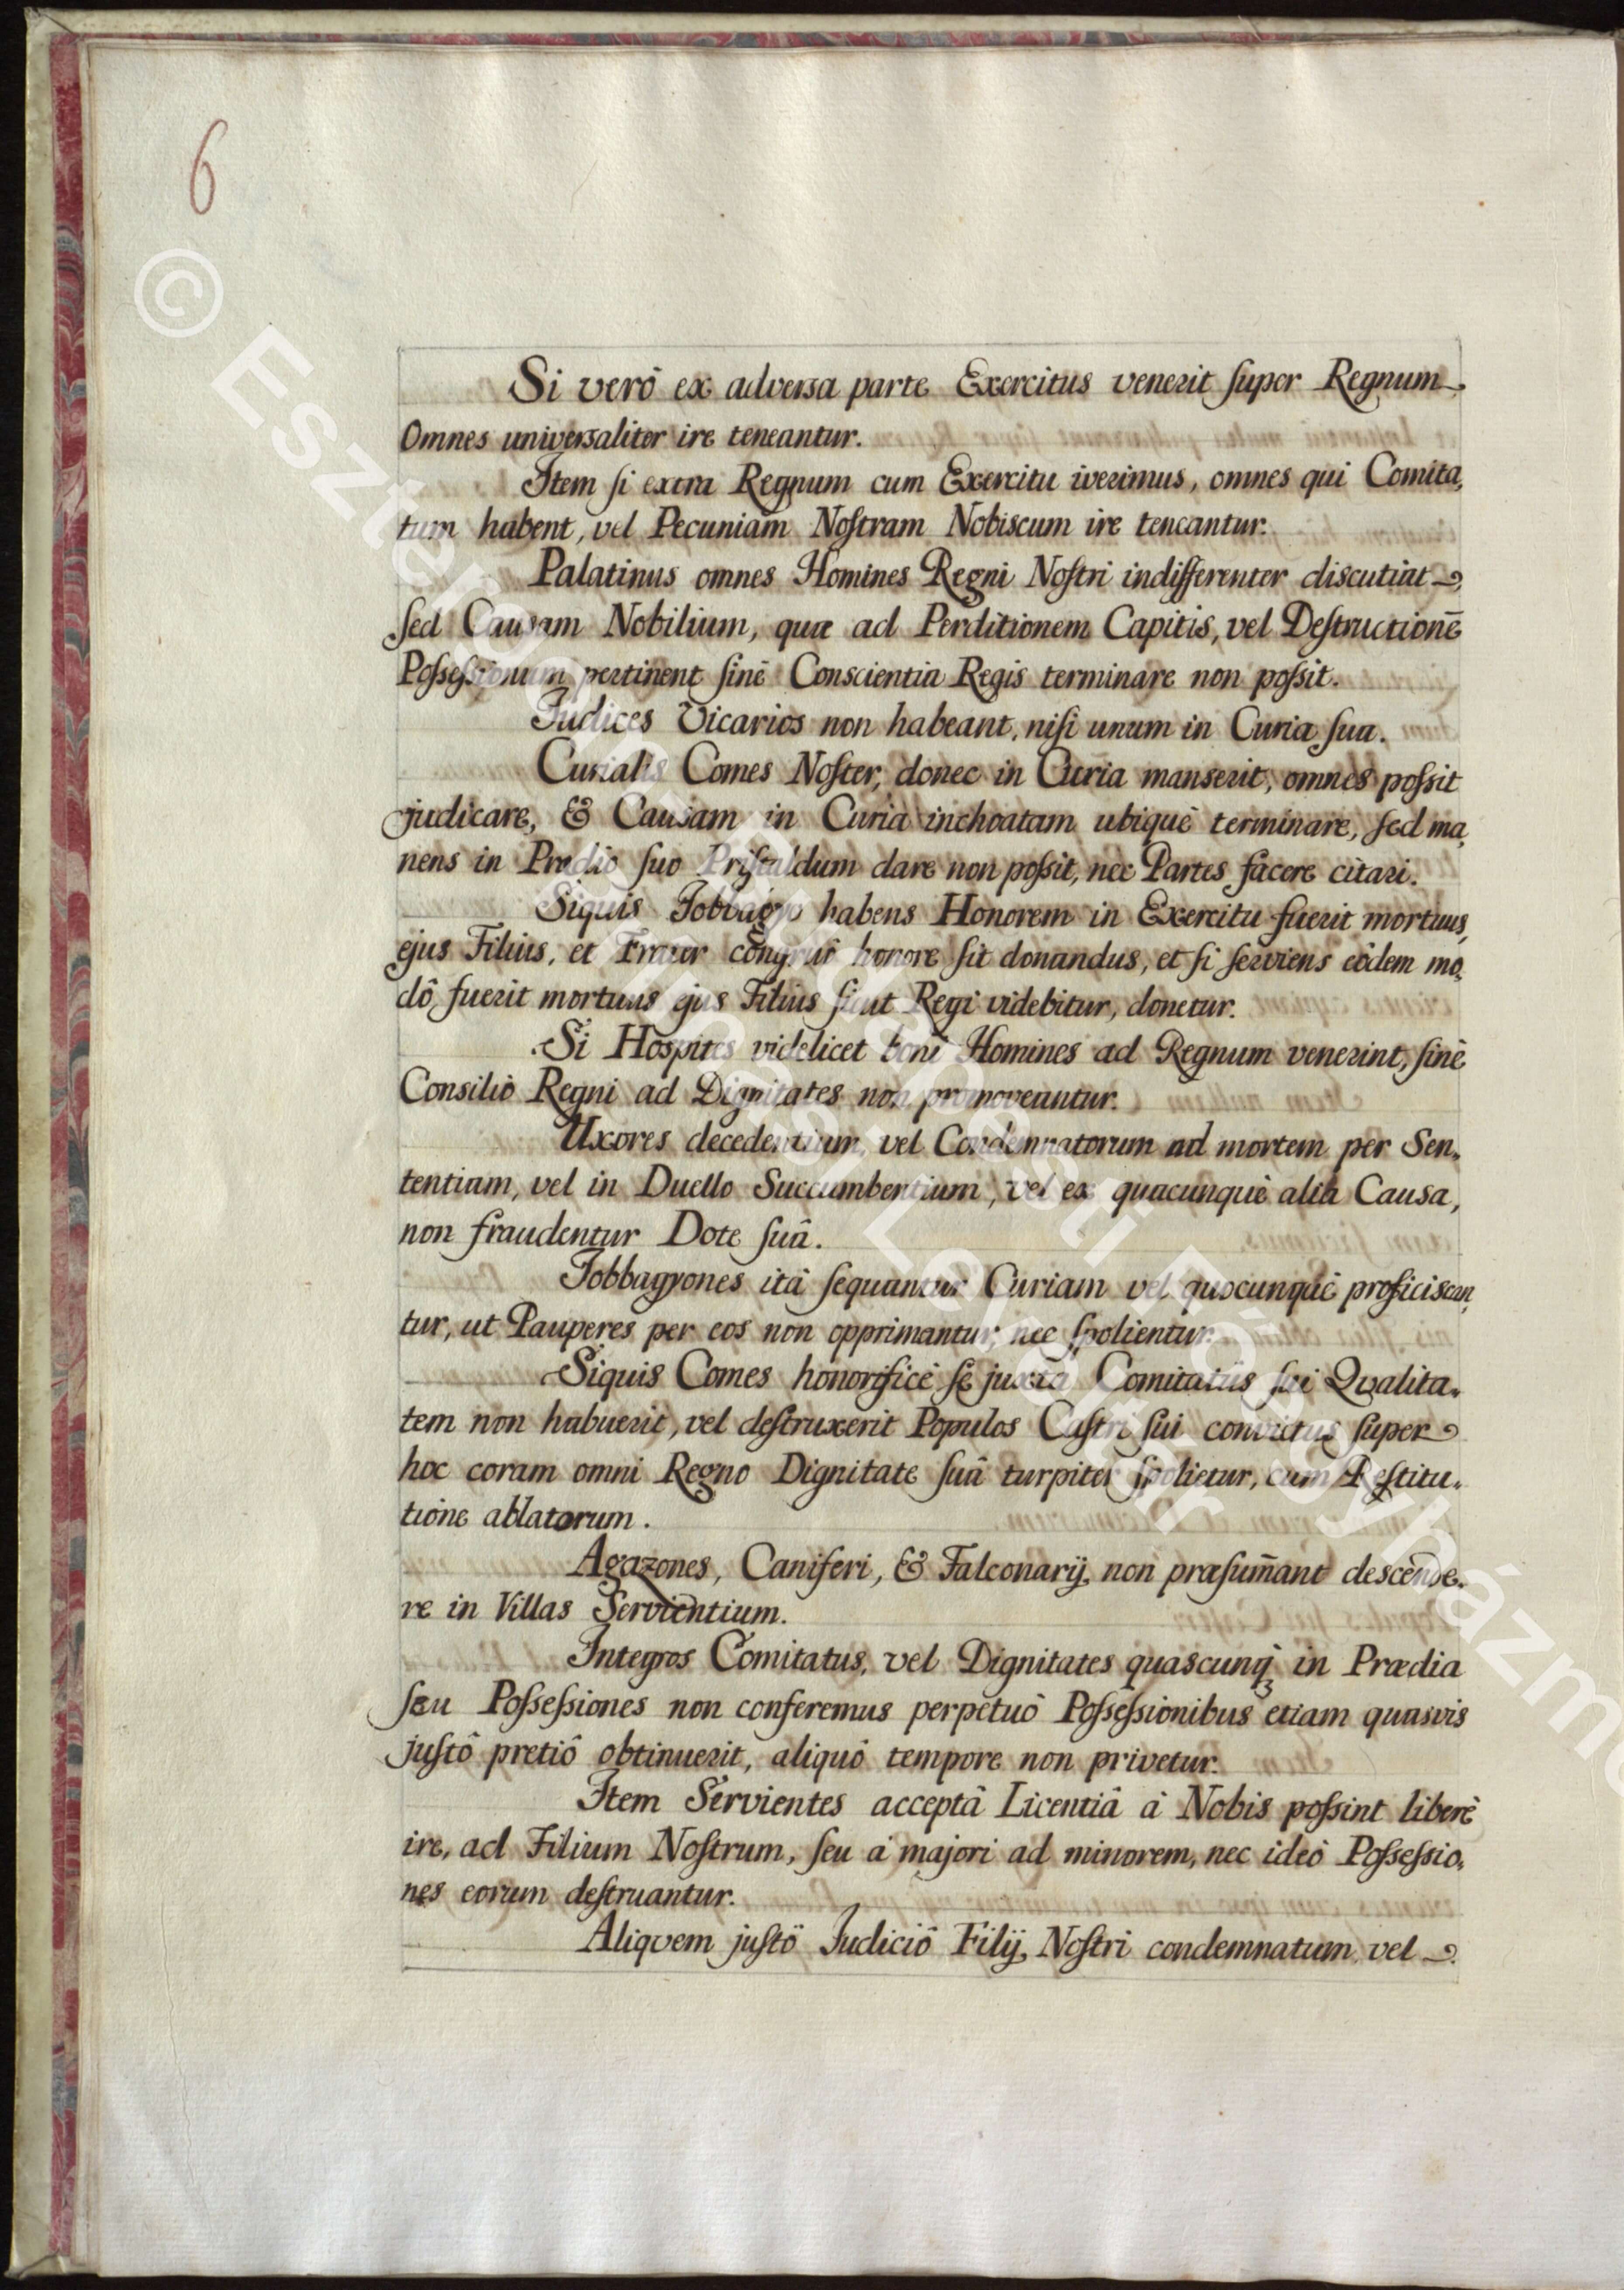 6
Si verò ex adversa parte Exercitus venerit super Regnum
Omnes universaliter ire teneantur.
Item si extra Regnum cum Exercitu iverimus, omnes qui Comita,
tum habent, vel Pecuniam Nostram Nobiscum ire teneantur.
Palatinus omnes Homines Regni Nostri indifferenter discutiat
sed Causam Nobilium, quæ ad Perditionem Capitis, vel Destructionē
Possessionum pertinent sinè Conscientia Regis terminare non possit.
Judices Vicarios non habeant, nisi unum in Curia sua.
Curialis Comes Noster, donec in Curia manserit, omnes possit
judicare, & Causam in Curia inchoatam ubiquè terminare, sed ma,
nens in Prædio suo Pristaldum dare non possit, nec Partes facere citari.
Siquis Jobbagyo habens Honorem in Exercitu fuerit mortuus,
ejus Filius, et Frater congruô honore sit donandus, et si serviens eôdem mo,
dô fuerit mortuus ejus Filius sicut Regi videbitur, donetur.
Si Hospites videlicet boni Homines ad Regnum venerint, sinè
Consilio Regni ad Dignitates non promoveantur.
Uxores decedentium, vel Condemnatorum ad mortem per Sen,
tentiam, vel in Duello Succumbentium, vel ex quacunquè alia Causa,
non fraudentur Dote suâ.
Jobbagyones itâ sequantur Curiam vel quocunquè proficiscan,
tur, ut Pauperes per eos non opprimantur, nec spolientur.
Siquis Comes honorificè se juxta Comitatûs sui Qvalita,
tem non habuerit, vel destruxerit Populos Castri sui convictus super
hoc coram omni Regno Dignitate suâ turpiter spolietur, cum Restitu,
tione ablatorum.
Agazones, Caniferi, & Falconarij, non præsum̄ant descende,
re in Villas Servientium.
Integros Comitatus, vel Dignitates quascunq; in Prædia
seu Possessiones non conferemus perpetuô Possessionibus etiam quasvis
justô pretiô obtinuerit, aliquô tempore non privetur.
Item Servientes acceptâ Licentiâ à Nobis possint liberè
ire, ad Filium Nostrum, seu à majori ad minorem, nec ideò Possessio,
nes eorum destruantur.
Aliqvem justô Judiciô Filij Nostri condemnatum vel